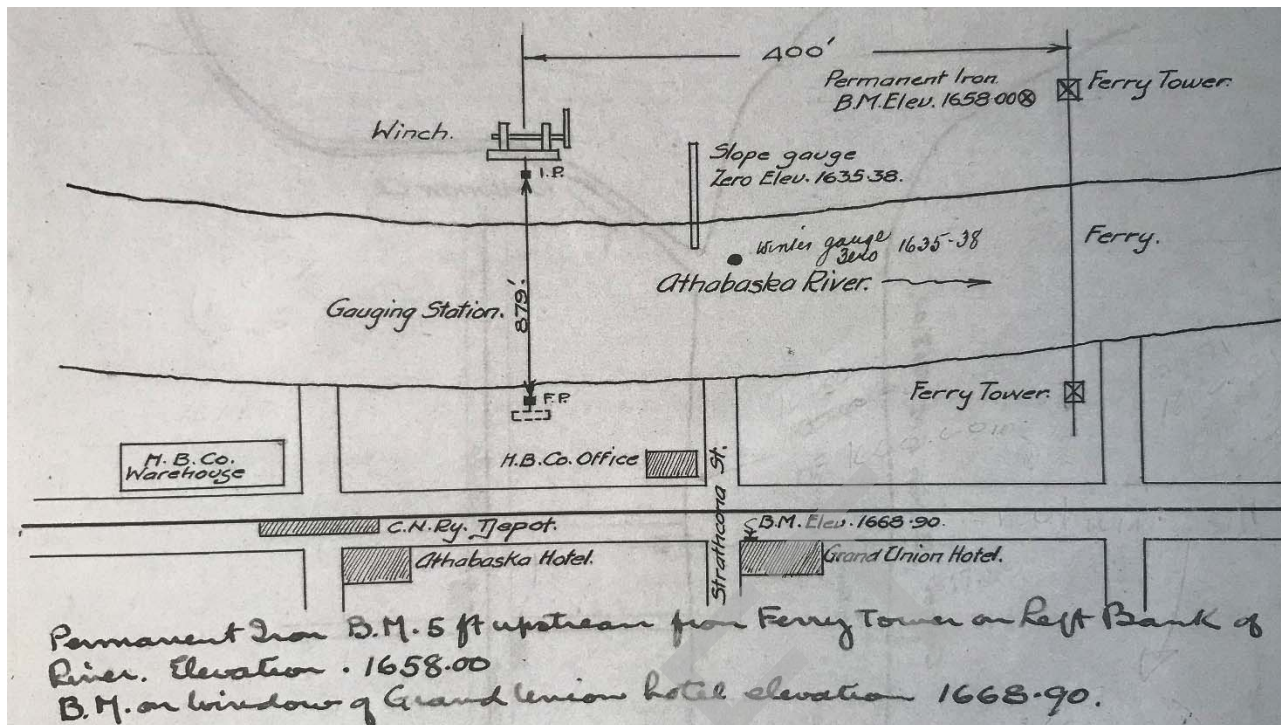 400'
Permanent Iron
B.M. Elev. 1658·00
Ferry Tower.
Winch.
I.P.
Slope gauge
Zero Elev. 1635·38.
Winter gauge
Zero 1635-38
Ferry.
Athabaska River.
Gauging Station.
879'.
F.P.
Ferry Tower.
H.B.Co.
Warehouse
H.B.Co. Office
Strathcona St.
C.N.Ry. Depot.
B.M. Elev. 1668·90.
Athabaska Hotel.
Grand Union Hotel.
Permanent Iron B.M. 5 ft upstream from Ferry Tower on Left Bank of
River. Elevation . 1658·00
B.M. on window of Grand Union hotel elevation 1668·90.